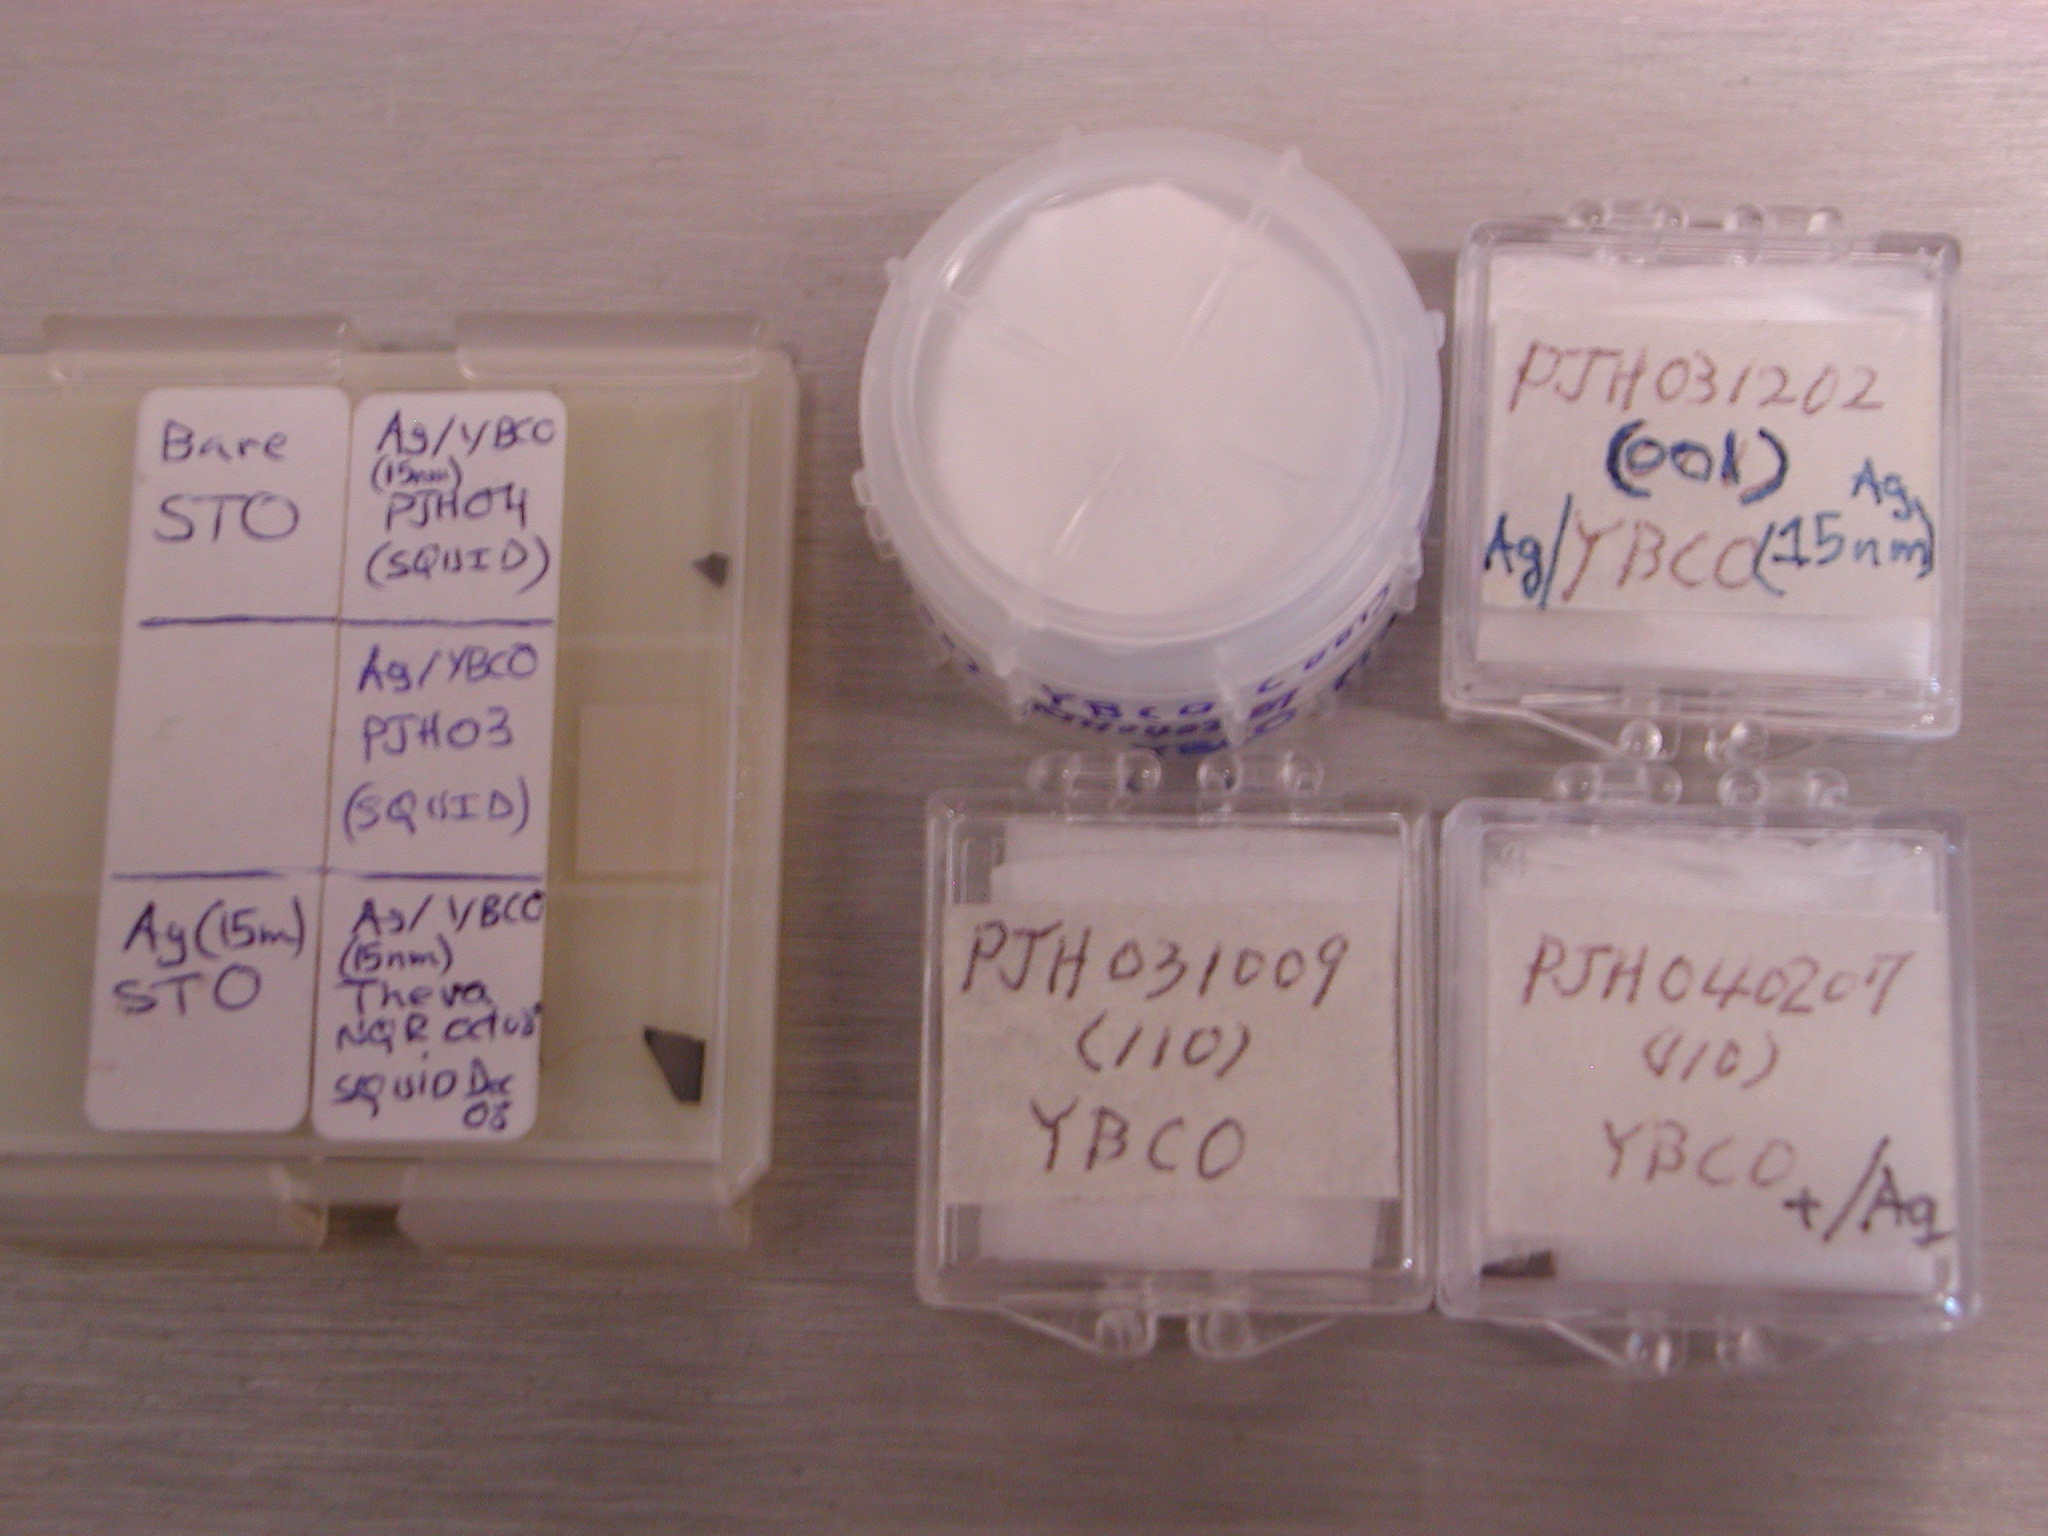 Bare
STO
Ag(15m)
STO
Ag/YBCO
(15nm)
PJH04
(SQUID)
Ag/YBCO
PJH03
(SQUID)
Ag/YBCO
(15nm)
Theva
NQR Oct03
SQUID Dec
03
YBCO
PJH031202
(001)
Ag
Ag/YBCO(15nm)
PJH031009
(110)
YBCO
PJH040207
(110)
YBCO+/Ag